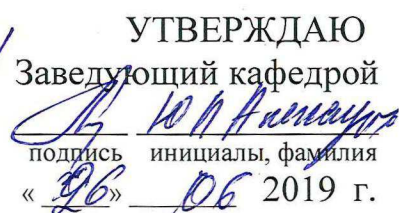 УТВЕРЖДАЮ
Заведующий кафедрой
Ю П
подпись инициалы, фамилия
«26» 06 2019 г.